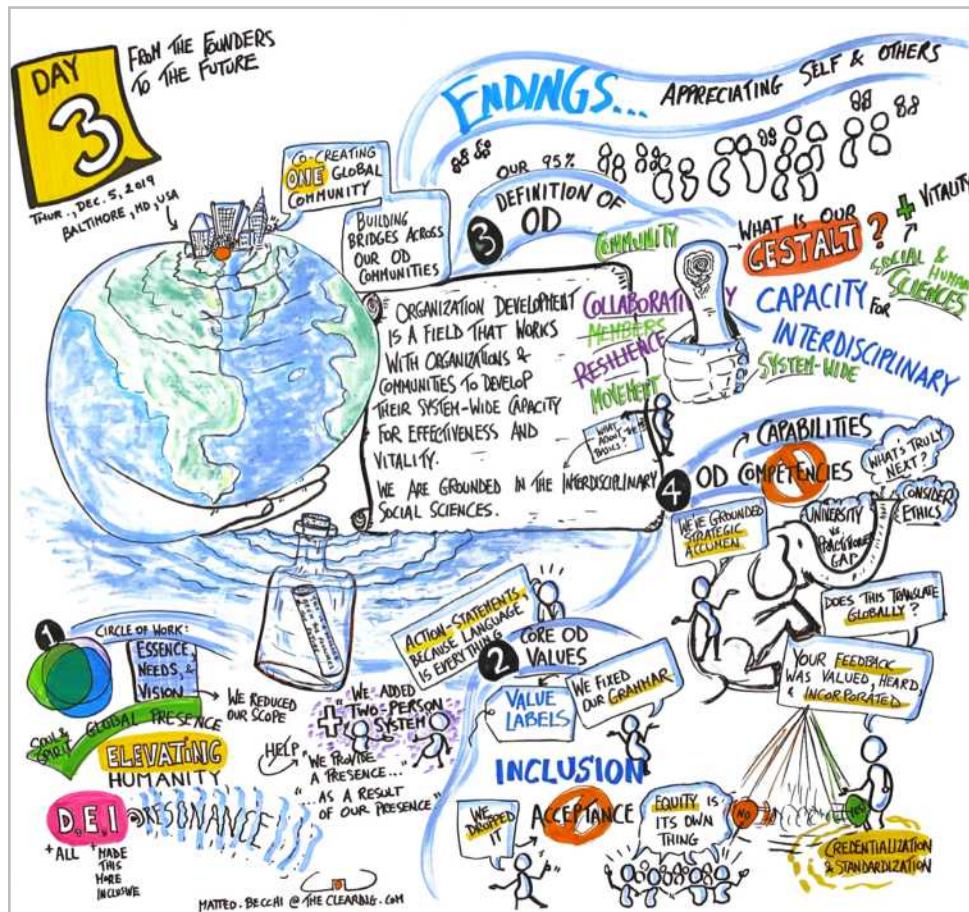 DAY
3
FROM THE FOUNDERS
TO THE FUTURE
THUR., DEC. 5, 2019
BALTIMORE, MD, USA
CO-CREATING
ONE GLOBAL
COMMUNITY
BUILDING
BRIDGES ACROSS
OUR OD
COMMUNITIES
ENDINGS...
APPRECIATING SELF & OTHERS
OUR 95%
3
DEFINITION OF
OD
ORGANIZATION DEVELOPMENT
IS A FIELD THAT WORKS
WITH ORGANIZATIONS &
COMMUNITIES TO DEVELOP
THEIR SYSTEM-WIDE CAPACITY
FOR EFFECTIVENESS AND
VITALITY.
WE ARE GROUNDED IN THE INTERDISCIPLINARY
SOCIAL SCIENCES.
COMMUNITY
COLLABORATIVELY
MEMBERS
RESILIENCE
MOVEMENT
WHAT
ABOUT THE
BASICS?
WHAT IS OUR
GESTALT?
+ VITALITY
SOCIAL &
HUMAN
SCIENCES
CAPACITY FOR
INTERDISCIPLINARY
SYSTEM-WIDE
4
CAPABILITIES
OD COMPETENCIES
WHAT'S TRULY
NEXT?
CONSIDER
ETHICS
UNIVERSITY
VS.
PRACTITIONER
GAP
WE'VE GROUNDED
STRATEGIC
ACCUMEN
DOES THIS TRANSLATE
GLOBALLY?
YOUR FEEDBACK
WAS VALUED, HEARD,
& INCORPORATED
NO
YES
CREDENTIALIZATION
& STANDARDIZATION
1
CIRCLE OF WORK:
ESSENCE,
NEEDS, &
VISION
WE REDUCED
OUR SCOPE
SOUL &
SPIRIT
GLOBAL PRESENCE
ELEVATING
HUMANITY
D.E.I
RESONANCE
+ ALL
+ MADE
THIS
MORE
INCLUSIVE
WE ADDED
+ "TWO-PERSON
SYSTEM"
HELP
"WE PROVIDE
A PRESENCE...
"...AS A RESULT
OF OUR PRESENCE"
ACTION-STATEMENTS,
BECAUSE LANGUAGE
IS EVERYTHING
2
CORE OD
VALUES
VALUE
LABELS
WE FIXED
OUR GRAMMAR
INCLUSION
ACCEPTANCE
WE
DROPPED
IT
EQUITY IS
ITS OWN
THING
MATTEO.BECCHI@THECLEARING.COM